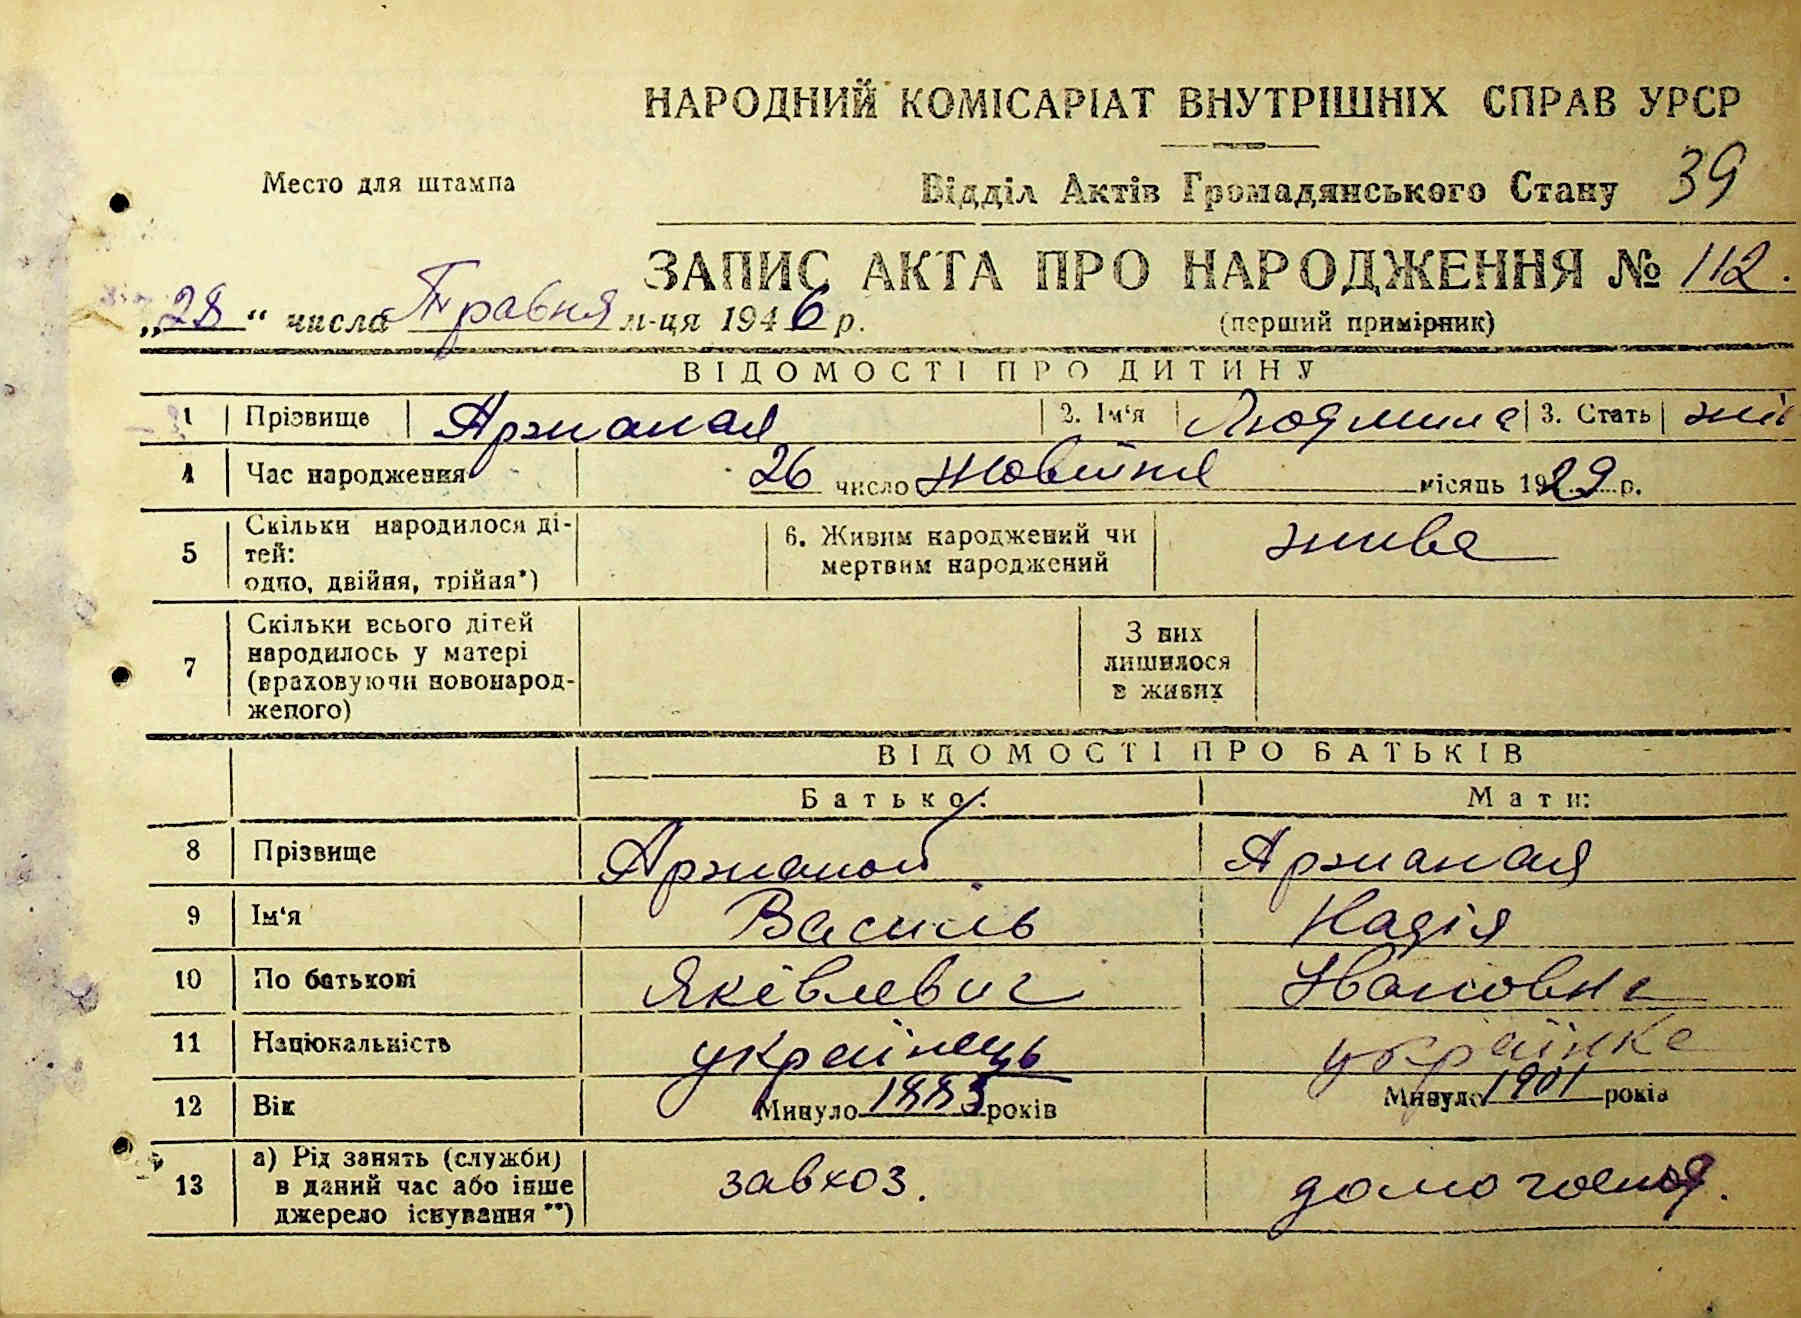 НАРОДНИЙ КОМІСАРІАТ ВНУТРІШНІХ СПРАВ УРСР
Место для штампа
Відділ Актів Громадянського Стану 39
ЗАПИС АКТА ПРО НАРОДЖЕННЯ № 112.
„28“ числа Травня м-ця 1946 р.
(перший примірник)
ВІДОМОСТІ ПРО ДИТИНУ
1 Прізвище Аржаная 2. Ім‘я Людмила 3. Стать жін
4 Час народження 26 число Жовтня місяць 1929 р.
5 Скільки народилося ді-
тей:
одно, двійня, трійня*)
6. Живим народжений чи
мертвим народжений
жива
7 Скільки всього дітей
народилось у матері
(враховуючи новонарод-
женого)
З них
лишилося
в живих
ВІДОМОСТІ ПРО БАТЬКІВ
Батько: Мати:
8 Прізвище Аржаной Аржаная
9 Ім‘я Василь Надія
10 По батькові Яківлевич Івановна
11 Національність українець українка
12 Вік Минуло 1883 років Минуло 1901 років
13 а) Рід занять (служби)
в даний час або інше
джерело існування**)
завхоз. домогосп.